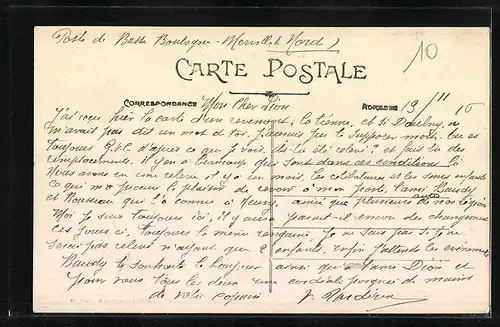 Poste de Basse Boulogne - Neuville Nord
10
CARTE POSTALE
CORRESPONDANCE Mon Cher Léon ADRESSE 19/11/16
J'ai reçu hier la carte d'un revenant, la tienne, et si ne
m'avait pas dit un mot de toi, j'aurais pu te supposer mort. Tu es
toujours d'après ce que je vois. As tu été relevé ? et fais tu des
remplacements. Il y en a beaucoup qui sont dans ces conditions là
Nous avons eu une relève il y a un mois. Les célibataires et les sans enfants
ce qui m'a procuré le plaisir de revoir à mon poste l'ami Baudy
et Rousseau que tu as connu à ainsi que plusieurs de nos région
Moi je suis toujours ici, il y aura parait-il encore des changements
ces jours ci. Toujours la même rengaine. Je ne sais pas si je ne
serai pas relevé n'ayant que 2 enfants, enfin j'attends les évènements
Baudy te souhaite le bonjour ainsi qu'à l'ami Dion et
pour vous tous les deux une cordiale poignée de mains
de votre copain